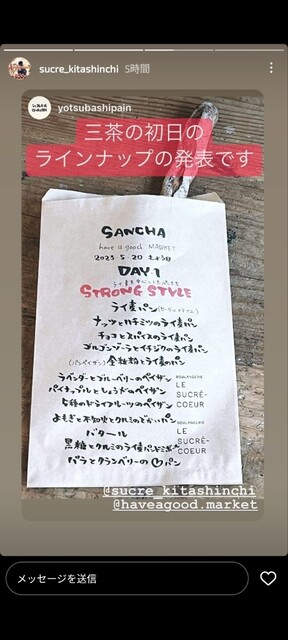 sucre_kitashinchi 5時間
yotsubashipain
三茶の初日の
ラインナップの発表です
SANCHA
have a good MARKET
2023-5-20 土よう日
DAY 1
STRONG STYLE
ライ麦パン
ナッツとハチミツのライ麦パン
チョコとスパイスのライ麦パン
ゴルゴンゾーラとイチジクのライ麦パン
(パンペイザン) 全粒粉とライ麦のパン
ラベンダーとブルーベリーのペイザン
パイナップルとしょうがのペイザン
5種のドライフルーツのペイザン
よもぎと不知火とクルミのでかいパン
バタール
黒糖とクルミのライ麦パンドミ
バラとクランベリーの パン
BOULANGERIE
LE
SUCRÉ-
COEUR
BOULANGERIE
LE
SUCRÉ-
COEUR
@sucre_kitashinchi
@haveagood.market
メッセージを送信